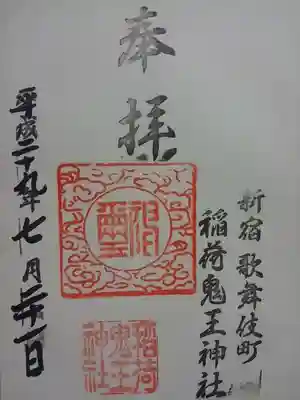 奉拝
新宿歌舞伎町
稲荷鬼王神社
稲荷
鬼王
神社
平成二十九年七月二十一日